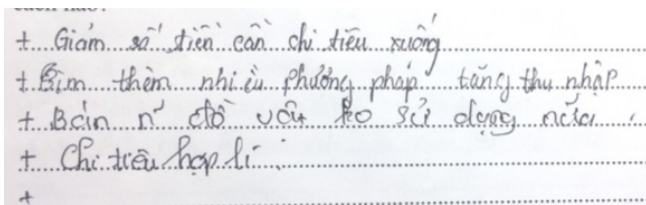 + Giảm số tiền cần chi tiêu xuống
+ Tìm thêm nhiều phương pháp tăng thu nhập
+ Bán n~ đồ vật ko sử dụng nữa.
+ Chi tiêu hợp lí.
+